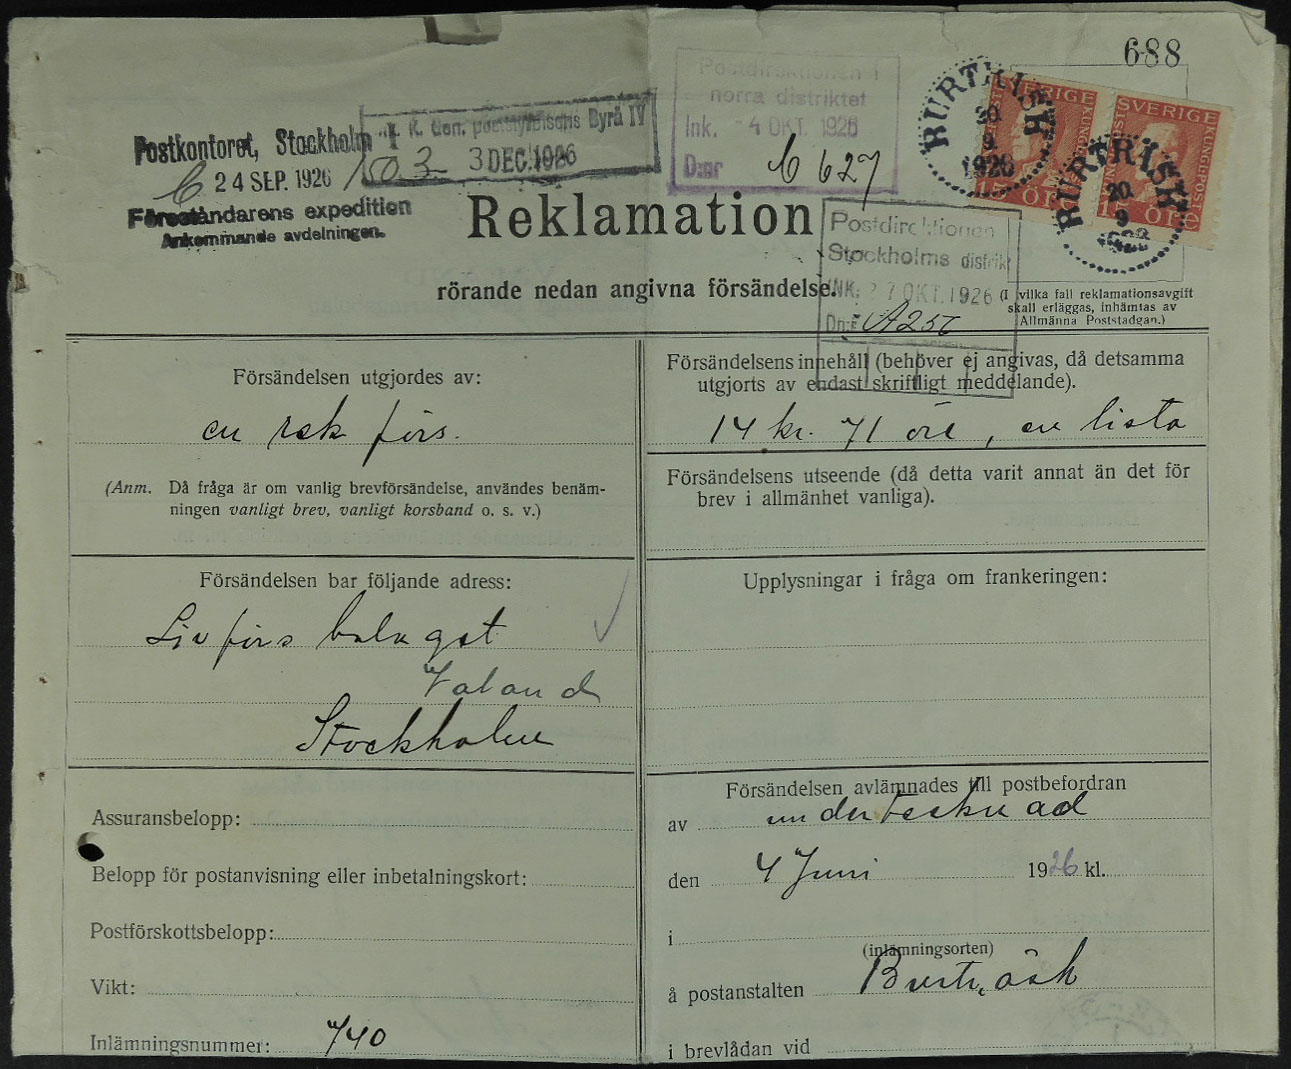 688
Postkontoret, Stockholm 1
C 24 SEP. 1926
Föreståndarens expedition
Ankommande avdelningen.
K. Gen. poststyrelsens Byrå IV
1503 3 DEC. 1926
Postdirektionen i
norra distriktet
Ink. 4 OKT. 1926
D:nr C 627
BURTRÄSK
20
9
1926
SVERIGE
15 ÖRE
BURTRÄSK
20
9
SVERIGE
KUNGL POST
Reklamation
Postdirektionen
Stockholms distrikt
INK: 27 OKT. 1926
Dn:r
rörande nedan angivna försändelse.
(I vilka fall reklamationsavgift
skall erläggas, inhämtas av
Allmänna Poststadgan.)
Försändelsen utgjordes av:
en rek förs.
(Anm. Då fråga är om vanlig brevförsändelse, användes benäm-
ningen vanligt brev, vanligt korsband o. s. v.)
Försändelsens innehåll (behöver ej angivas, då detsamma
utgjorts av endast skriftligt meddelande).
14 kr. 71 öre, en lista
Försändelsens utseende (då detta varit annat än det för
brev i allmänhet vanliga).
Försändelsen bar följande adress:
Livförs bolaget
Valand
Stockholm
Upplysningar i fråga om frankeringen:
Assuransbelopp:
Belopp för postanvisning eller inbetalningskort:
Postförskottsbelopp:
Vikt:
Inlämningsnummer: 740
Försändelsen avlämnades till postbefordran
av undertecknad
den 4 Juni 1926 kl.
i
(inlämningsorten)
å postanstalten Burträsk
i brevlådan vid